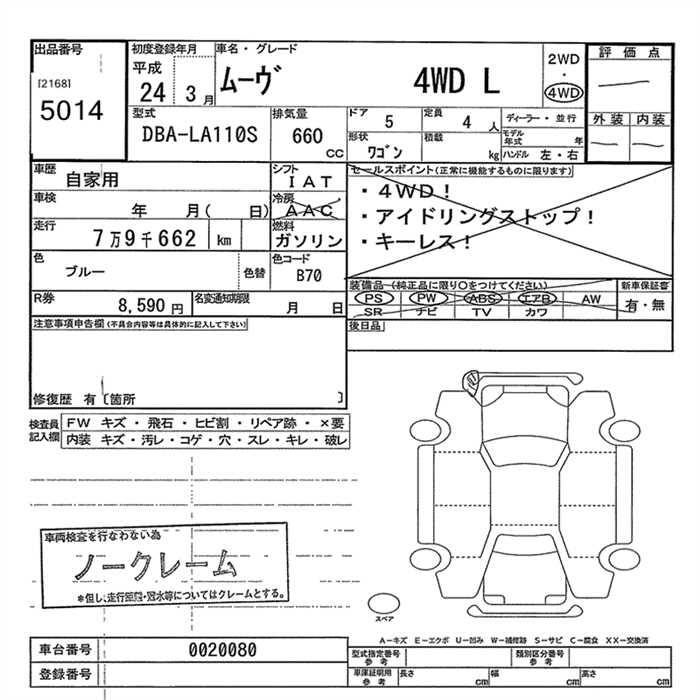 出品番号
[2168]
5014
初度登録年月
平成
24 3月
車名・グレード
ムーヴ 4WD L
2WD
・
4WD
評価点
外装 内装
型式
DBA-LA110S
排気量
660
cc
ドア 5
定員 4 人
ディーラー・並行
形状
ワゴン
積載
kg
モデル年式 年
ハンドル 左・右
車歴
自家用
シフト
IAT
車検
年 月( 日)
冷房
AAC
走行
7万9千662 km
燃料
ガソリン
色
ブルー
色替
色コード
B70
R券
8,590 円
名変通知期限
月 日
セールスポイント(正常に機能するものに限ります)
・4WD!
・アイドリングストップ!
・キーレス!
装備品(純正品に限り○をつけてください)
新車保証書
PS PW ABS エアB AW
有・無
SR ナビ TV カワ
後日品
注意事項申告欄(不具合内容等は具体的に記入して下さい)
修復歴 有〔箇所 〕
検査員
記入欄
FW キズ・飛石・ヒビ割・リペア跡・×要
内装 キズ・汚レ・コゲ・穴・スレ・キレ・破レ
車両検査を行なわない為
ノークレーム
*但し、走行距離・冠水等についてはクレームとする。
スペア
A-キズ E-エクボ U-凹み W-補修跡 S-サビ C-腐食 XX-交換済
車台番号
0020080
登録番号
型式指定番号
参考
類別区分番号
参考
車庫証明用
参考
長さ cm
幅 cm
高さ cm